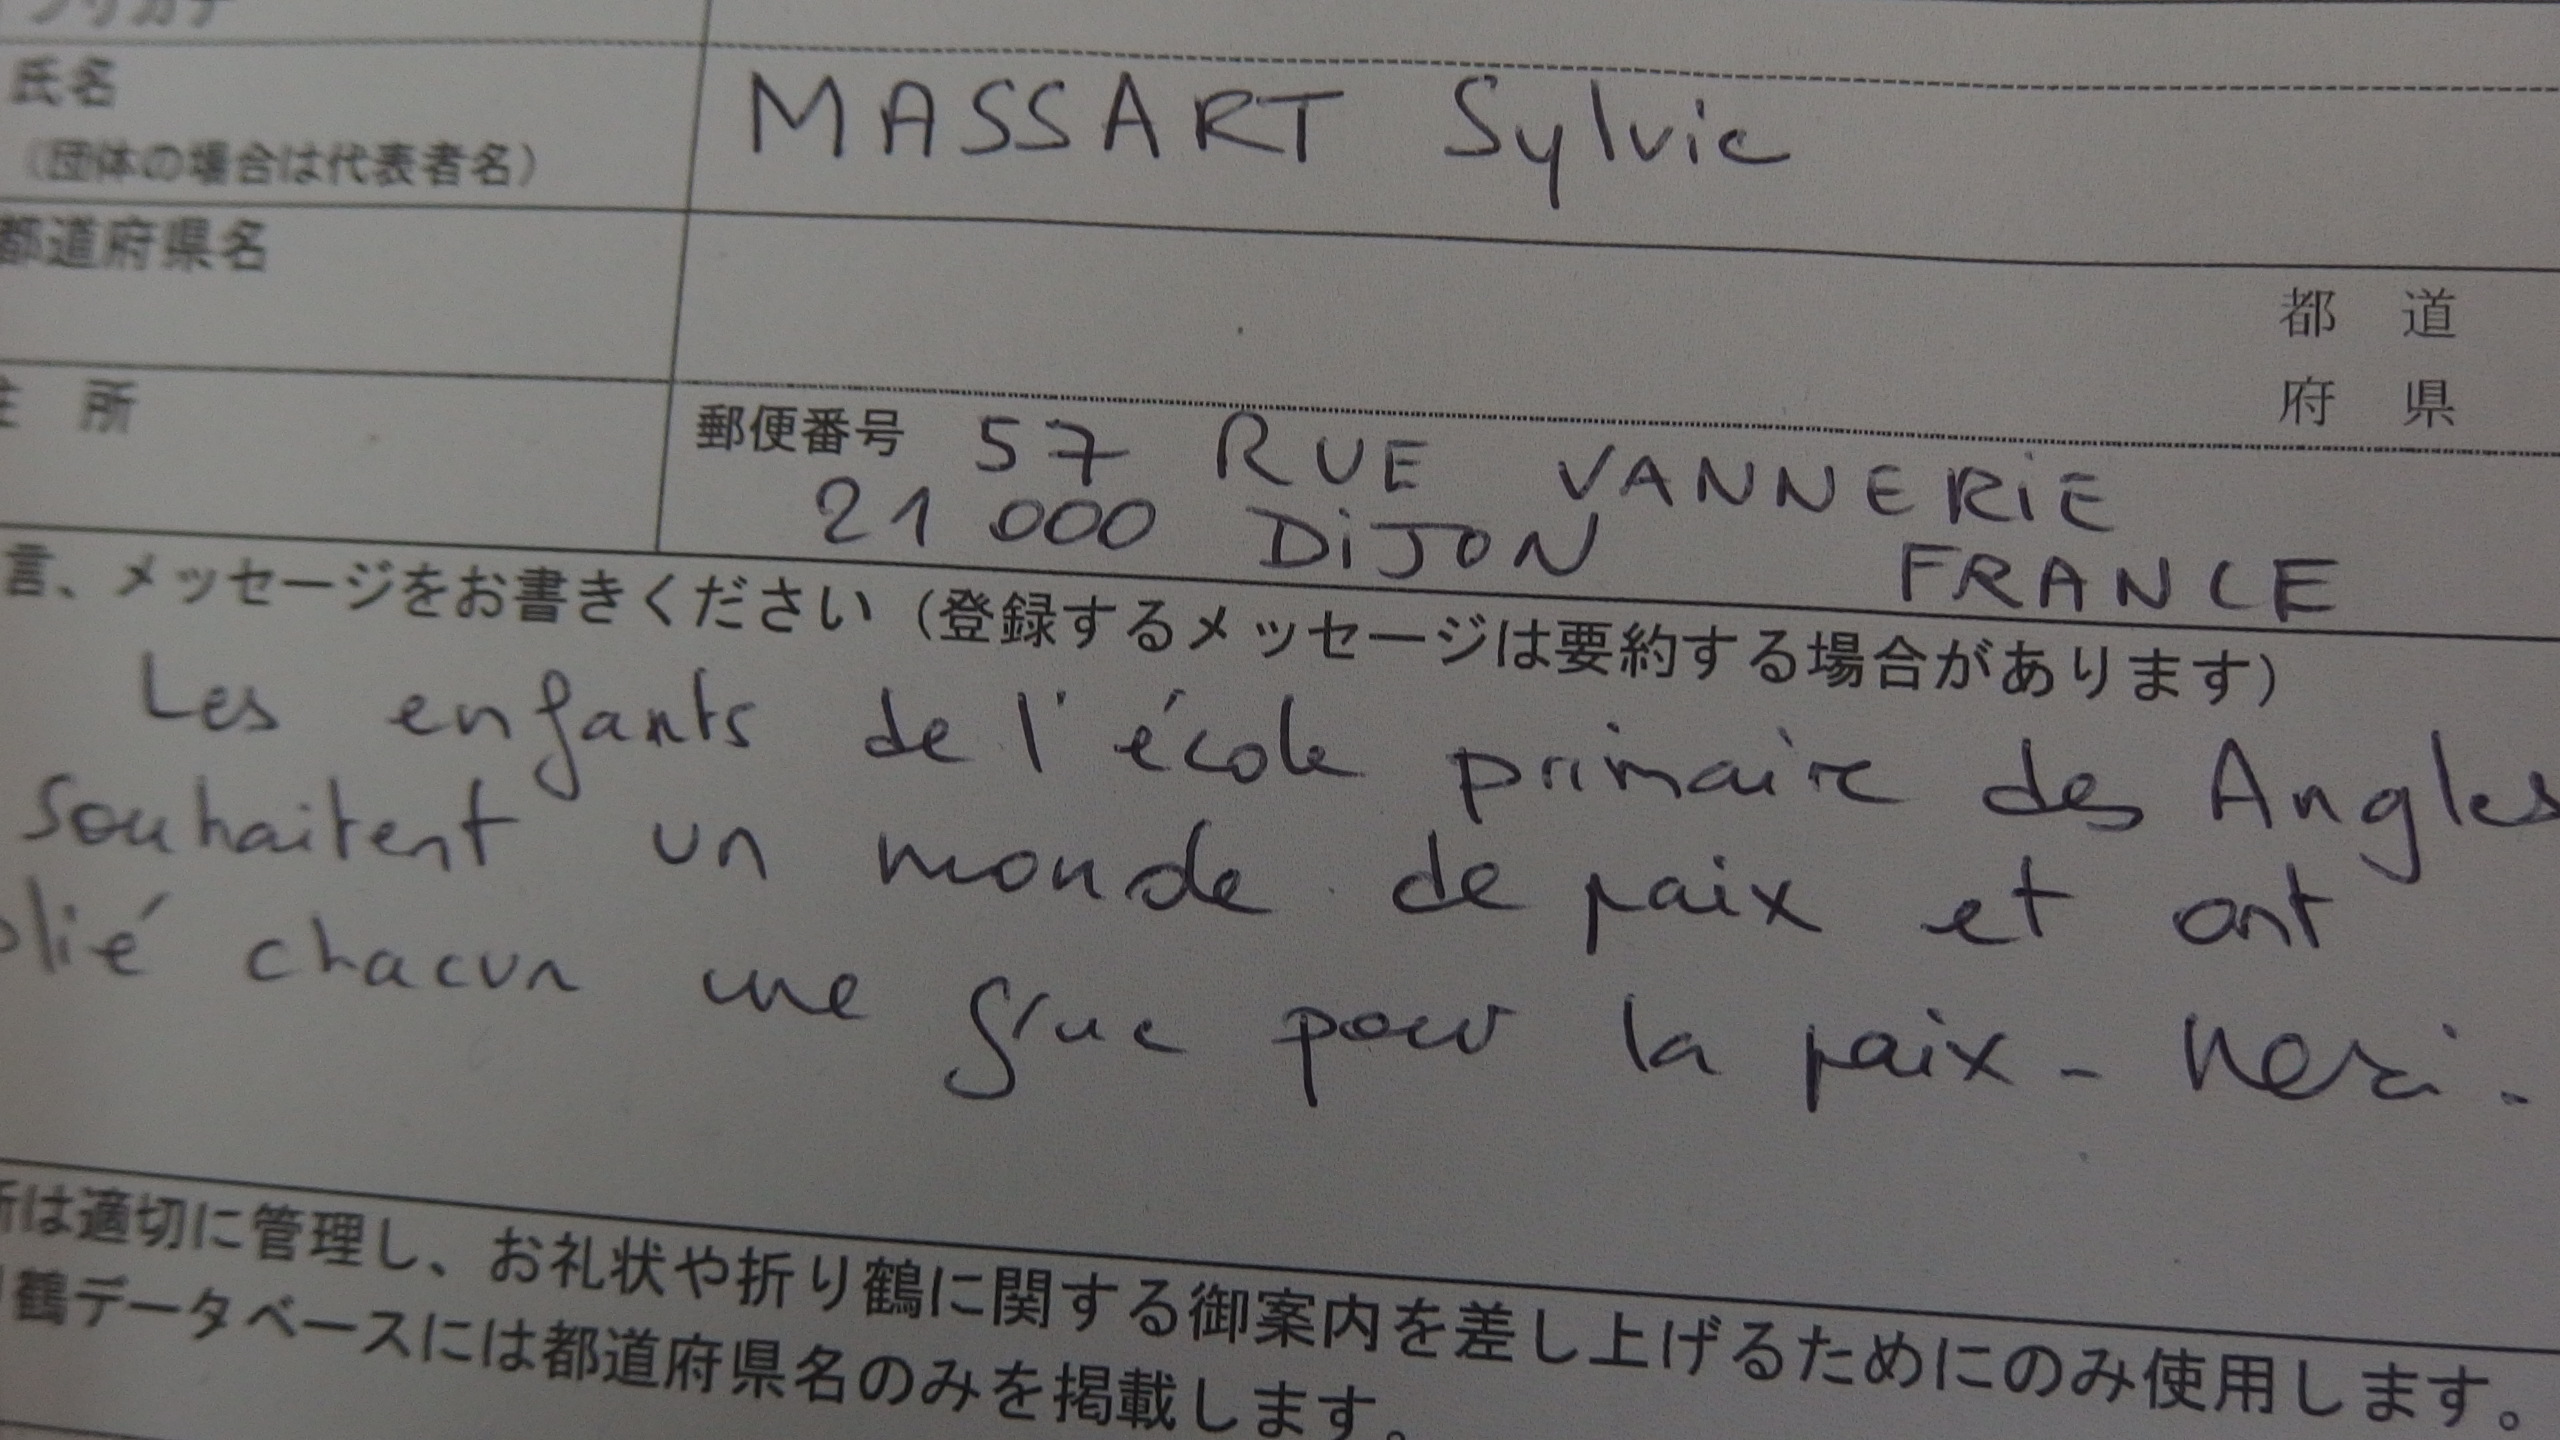 フリガナ
氏名 MASSART Sylvie
（団体の場合は代表者名）
都道府県名
都 道
府 県
所
郵便番号 57 RUE VANNERIE
21 000 DIJON FRANCE
言、メッセージをお書きください（登録するメッセージは要約する場合があります）
Les enfants de l'école primaire des Angles
souhaitent un monde de paix et ont
plié chacun une grue pour la paix -
は適切に管理し、お礼状や折り鶴に関する御案内を差し上げるためにのみ使用します。
鶴データベースには都道府県名のみを掲載します。